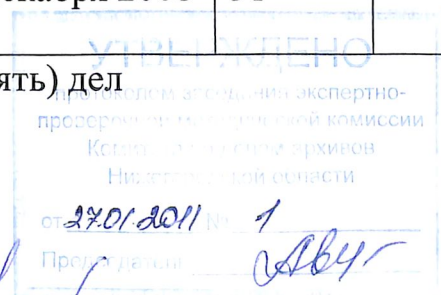 УТВЕРЖДЕНО
ять) дел
протоколом заседания экспертно-
проверочной методической комиссии
архивов
Нижегородской области
от 27.01.2011 № 1
Председатель